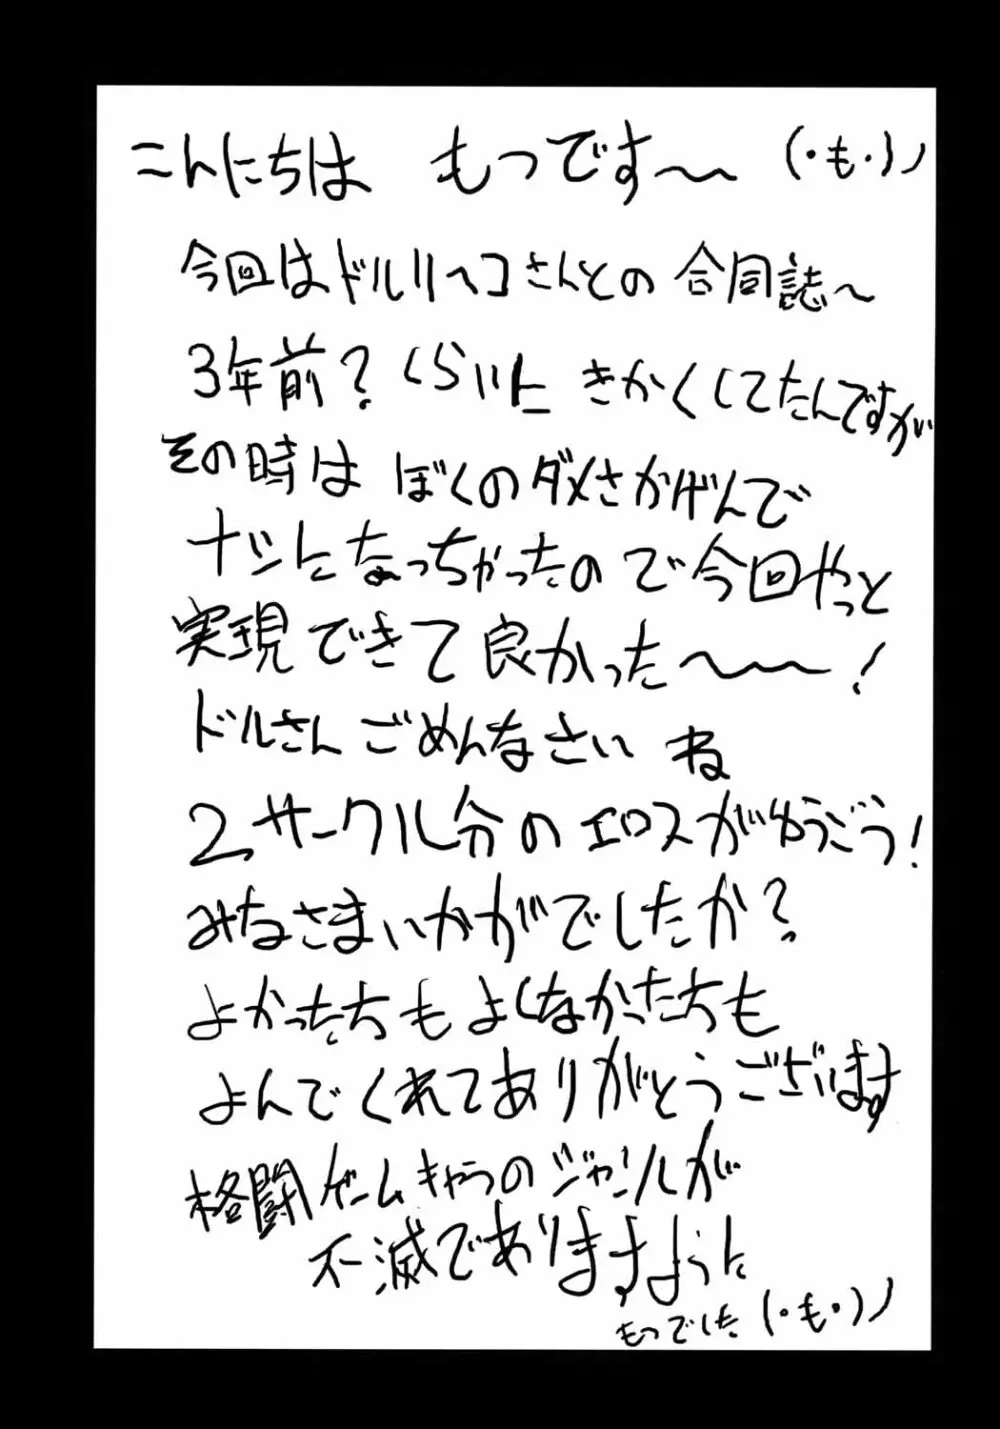 こんにちは もつです〜 (・も・)ノ
今回はドルリヘコさんとの 合同誌〜
3年前?くらいに きかくしてたんですが
その時は ぼくのダメさかげんで
ナシになっちゃったので今回やっと
実現できて良かった〜〜!
ドルさん ごめんなさい ね
2サークル分の エロスがゆうごう!
みなさまいかがでしたか?
よかったちも よくなかたたちも
よんでくれてありがとうございます
格闘ゲームキャラのジャンルが
不滅でありますように
もつでした (・も・)ノ